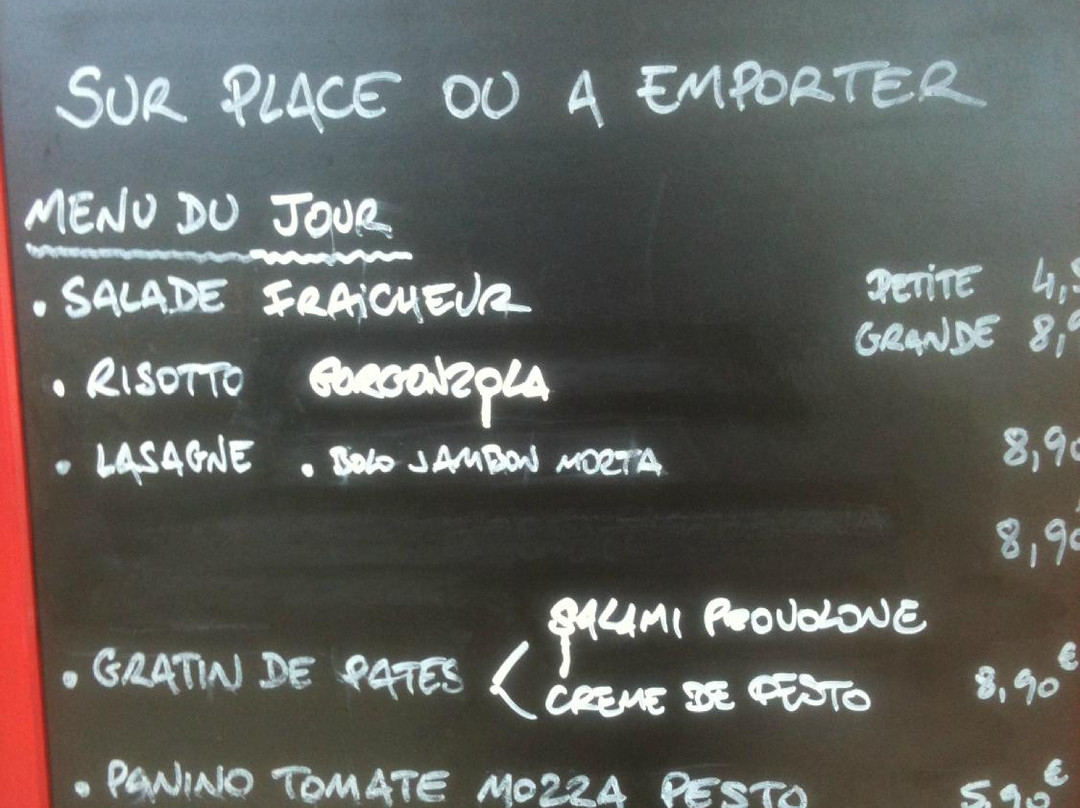 SUR PLACE OU A EMPORTER
MENU DU JOUR
• SALADE FRAiCHEUR PETiTE 4,
GRANDE 8,9
• RISOTTO GORGONZOLA
• LASAGNE • BOLO JAMBON MORTA 8,90
8,90
SALAMI PROVOLONE
• GRATIN DE PATES < 8,90€
CREME DE PESTO
• PANINO TOMATE MOZZA PESTO 5,90€